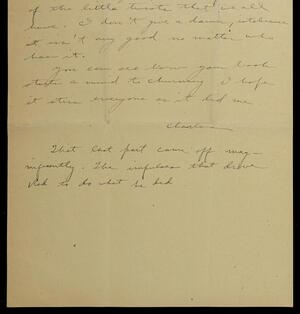 of the little twists that we all
have. I don't give a damn, intolerance
it isn't any good no matter who
has it.
you can see how your book
starts a mind to churning. I hope
it stirs everyone as it did me
Charles
That last part came off mag-
nificently. The impulses that drove
to do what he did